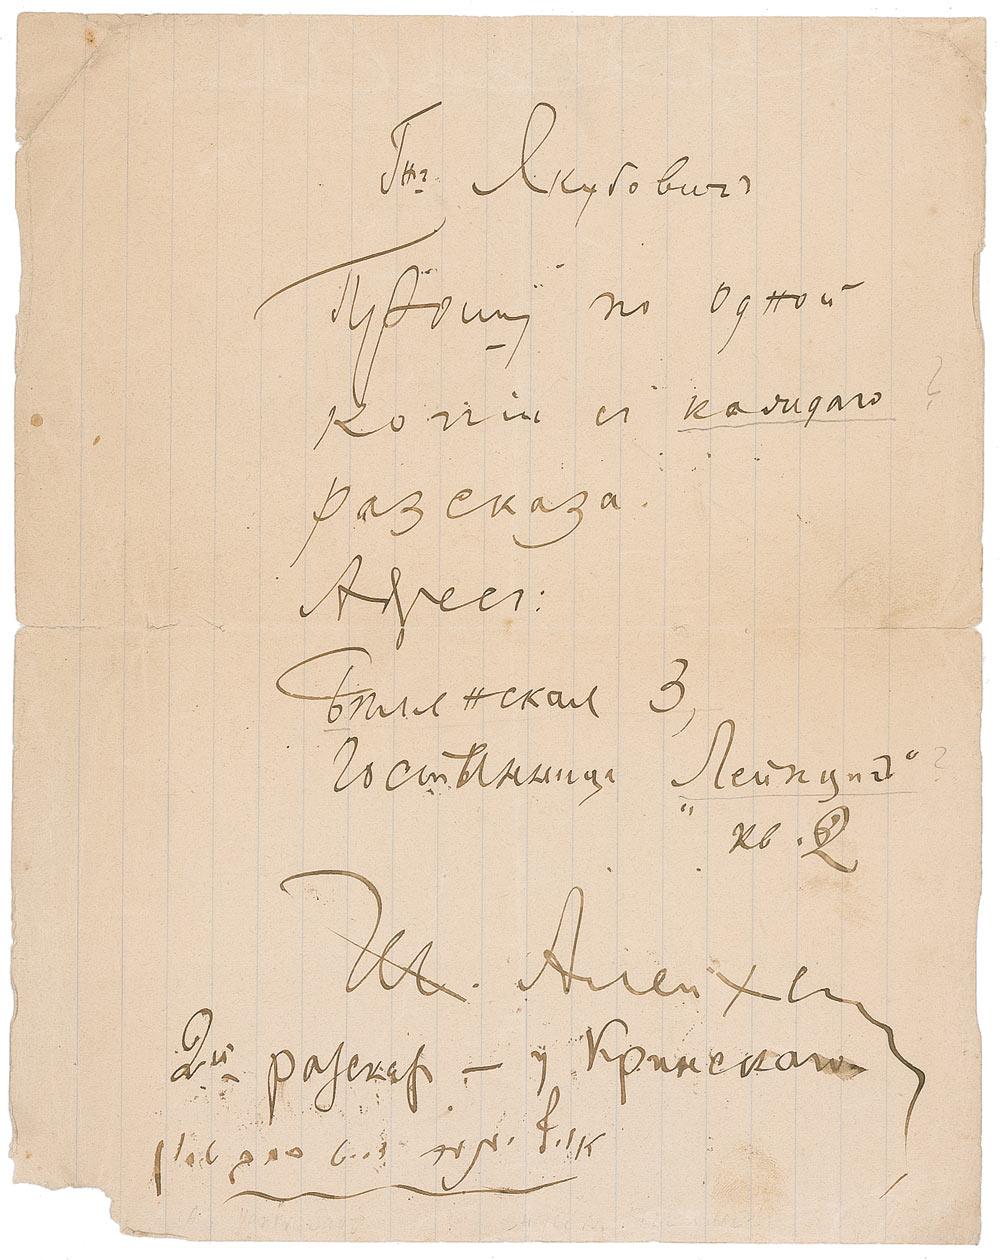 Г-нъ Якубовичъ
по одной
копіи съ каждаго ?
разсказа.
Адресъ:
Билянская 3,
Гостинница „Лейпцигъ“ ?
кв. 2
Ш. Алейхем
2й разсказ — у Кринскаго